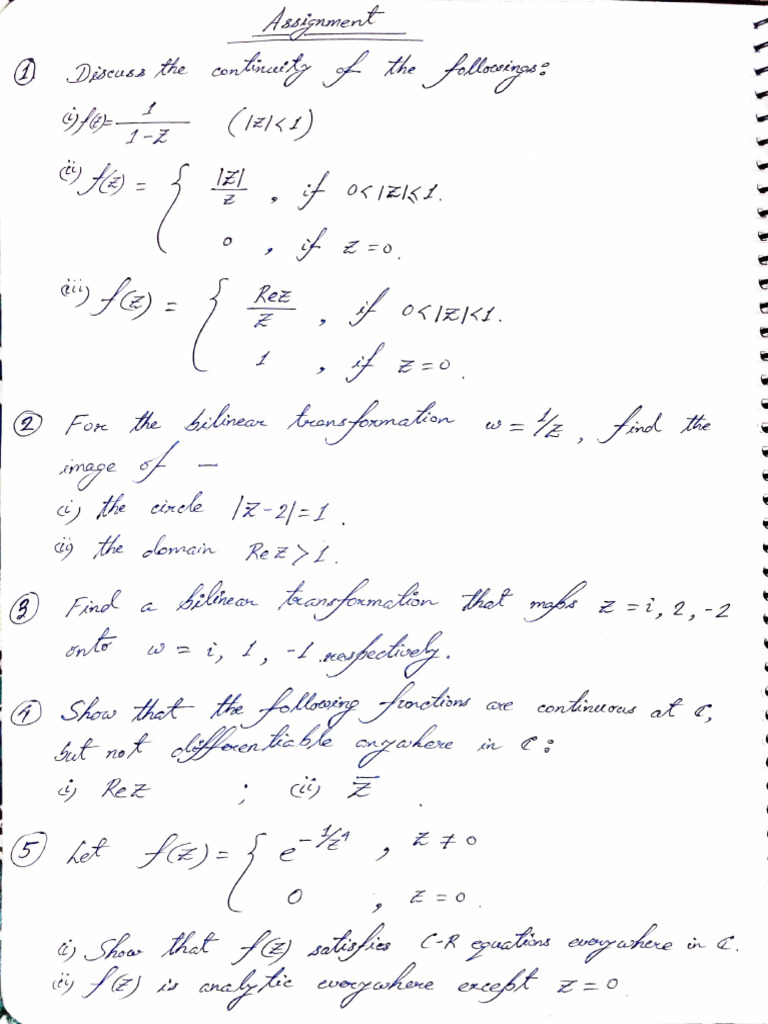 Assignment
① Discuss the continuity of the followings:
(i) f(z) = 1/(1-z) (|z|<1)
(ii) f(z) = { |z|/z , if 0<|z|≤1.
0 , if z=0.
(iii) f(z) = { Rez/z , if 0<|z|<1.
1 , if z=0.
② For the bilinear transformation w = 1/z, find the
image of —
(i) the circle |z-2|=1.
(ii) the domain Re z>1.
③ Find a bilinear transformation that maps z = i, 2, -2
onto w = i, 1, -1 respectively.
④ Show that the following functions are continuous at ℂ,
but not differentiable anywhere in ℂ:
(i) Re z ; (ii) z̅.
⑤ Let f(z) = { e^(-1/z⁴) , z ≠ 0
0 , z = 0.
(i) Show that f(z) satisfies C-R equations everywhere in ℂ.
(ii) f(z) is analytic everywhere except z = 0